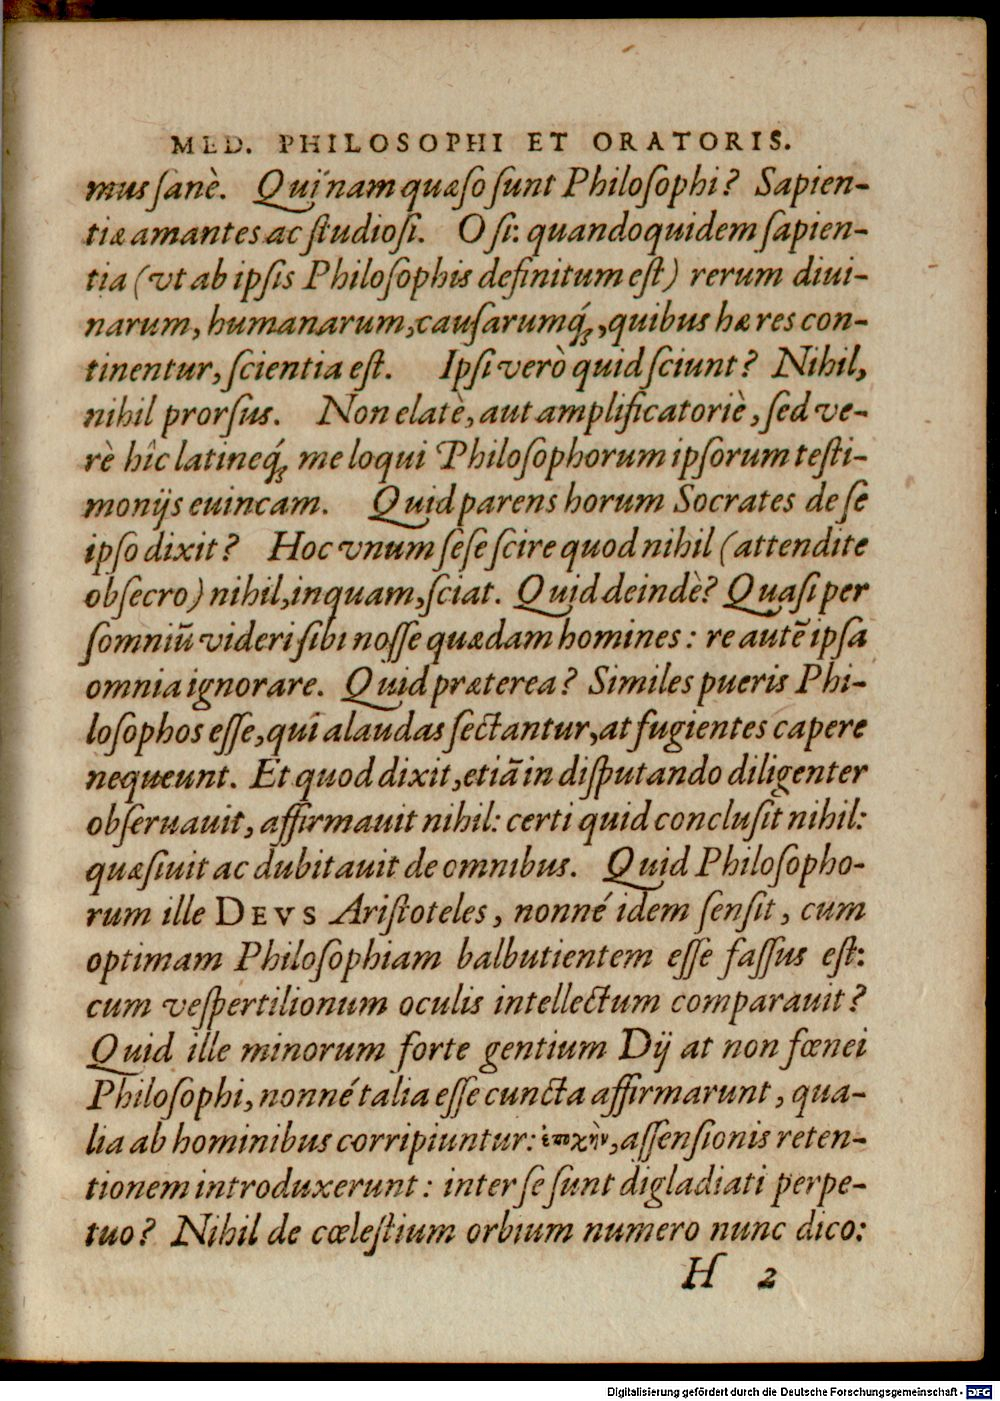 MED. PHILOSOPHI ET ORATORIS.
mus sanè. Quinam quæso sunt Philosophi? Sapien-
tiæ amantes ac studiosi. O si: quandoquidem sapien-
tia (vt ab ipsis Philosophis definitum est) rerum diui-
narum, humanarum, causarumq́;, quibus hæ res con-
tinentur, scientia est. Ipsi verò quid sciunt? Nihil,
nihil prorsus. Non elatè, aut amplificatoriè, sed ve-
rè hîc latineq́; me loqui Philosophorum ipsorum testi-
monijs euincam. Quid parens horum Socrates de se
ipso dixit? Hoc vnum sese scire quod nihil (attendite
obsecro) nihil, inquam, sciat. Quid deindè? Quasi per
somniũ videri sibi nosse quædam homines: re autẽ ipsa
omnia ignorare. Quid præterea? Similes pueris Phi-
losophos esse, qui alaudas sectantur, at fugientes capere
nequeunt. Et quod dixit, etiã in disputando diligenter
obseruauit, affirmauit nihil: certi quid conclusit nihil:
quæsiuit ac dubitauit de omnibus. Quid Philosopho-
rum ille DEVS Aristoteles, nonné idem sensit, cum
optimam Philosophiam balbutientem esse fassus est:
cum vespertilionum oculis intellectum comparauit?
Quid ille minorum forte gentium Dij at non fœnei
Philosophi, nonné talia esse cuncta affirmarunt, qua-
lia ab hominibus corripiuntur: ἐποχὴν, assensionis reten-
tionem introduxerunt: inter se sunt digladiati perpe-
tuo? Nihil de cœlestium orbium numero nunc dico:
H 2
Digitalisierung gefördert durch die Deutsche Forschungsgemeinschaft - DFG